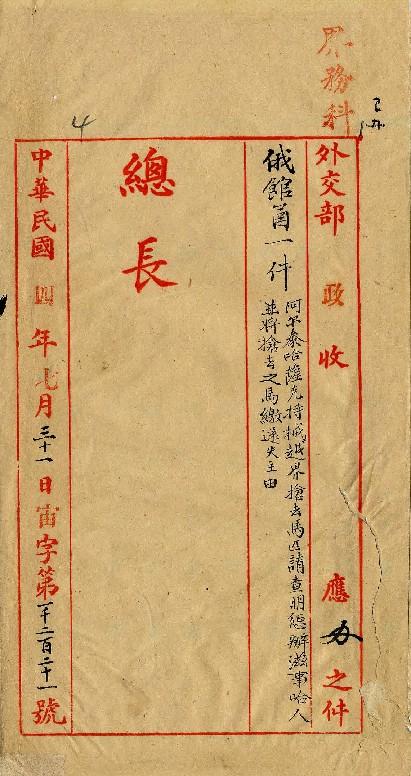 界務科
已办
外交部 政收 應办之件
俄館函一件
阿尔泰哈薩克持械越界搶去馬匹請查明懲辦滋事哈人
並將搶去之馬繳還失主由
總長
4
中華民國四年七月三十一日宙字第一千二百二十一號